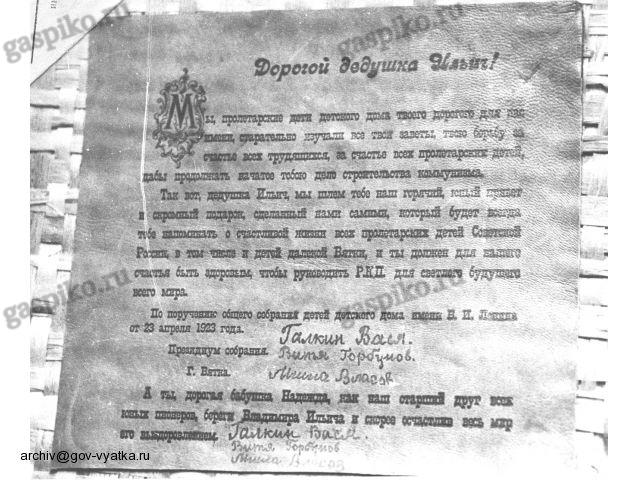 Дорогой дедушка Ильич!
Мы, пролетарские дети детского дома твоего дорогого для нас
имени, старательно изучали все твои заветы, твою борьбу за
счастье всех трудящихся, за счастье всех пролетарских детей,
дабы продолжать начатое тобою дело строительства коммунизма.
Так вот, дедушка Ильич, мы шлем тебе наш горячий, юный привет
и скромный подарок, сделанный нами самими, который будет всегда
тебе напоминать о счастливой жизни всех пролетарских детей Советской
России, в том числе и детей далекой Вятки, и ты должен для нашего
счастья быть здоровым, чтобы руководить Р.К.П. для светлого будущего
всего мира.
По поручению общего собрания детей детского дома имени В. И. Ленина
от 23 апреля 1923 года.
Галкин Вася.
Президиум собрания.
Витя Горбунов.
Г. Вятка.
Миша Власов
А ты, дорогая бабушка Надежда, как наш старший друг всех
юных пионеров, береги Владимира Ильича и скорее осчастливь весь мир
его выздоровлением.
Галкин Вася.
Витя Горбунов
Миша Власов
gaspiko.ru
gaspiko.ru
gaspiko.ru
gaspiko.ru
archiv@gov-vyatka.ru